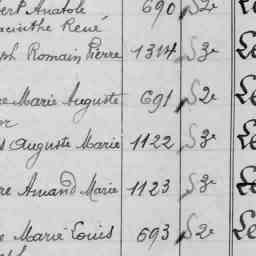 Anatole 690 S2e
Hyacinthe René
Romain Pierre 1314 S3e
Marie Auguste 691 S2e
Auguste Marie 1122 S3e
Amand Marie 1123 S3e
Marie Louis 693 S2e